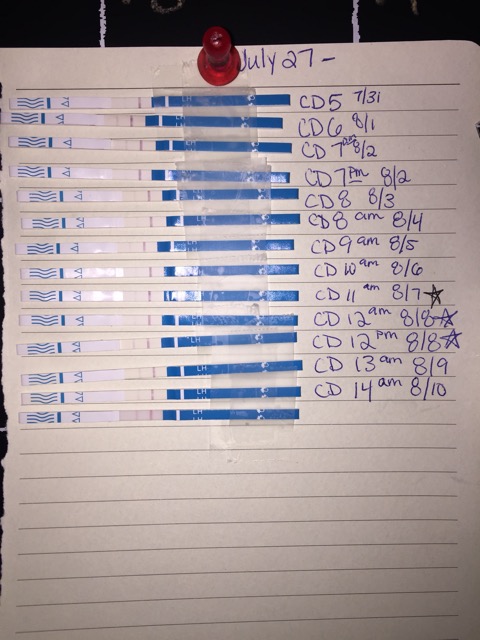 July 27 -
CD5 7/31
CD6 8/1
CD 7am 8/2
CD 7pm 8/2
CD 8 8/3
CD 8 am 8/4
CD 9 am 8/5
CD 10 am 8/6
CD 11 am 8/7 ☆
CD 12 am 8/8 ☆
CD 12 pm 8/8 ☆
CD 13 am 8/9
CD 14 am 8/10
LH
LH
LH
LH
LH